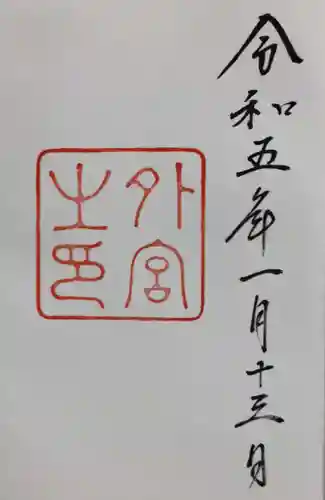 令和五年一月十三日
外宮之印